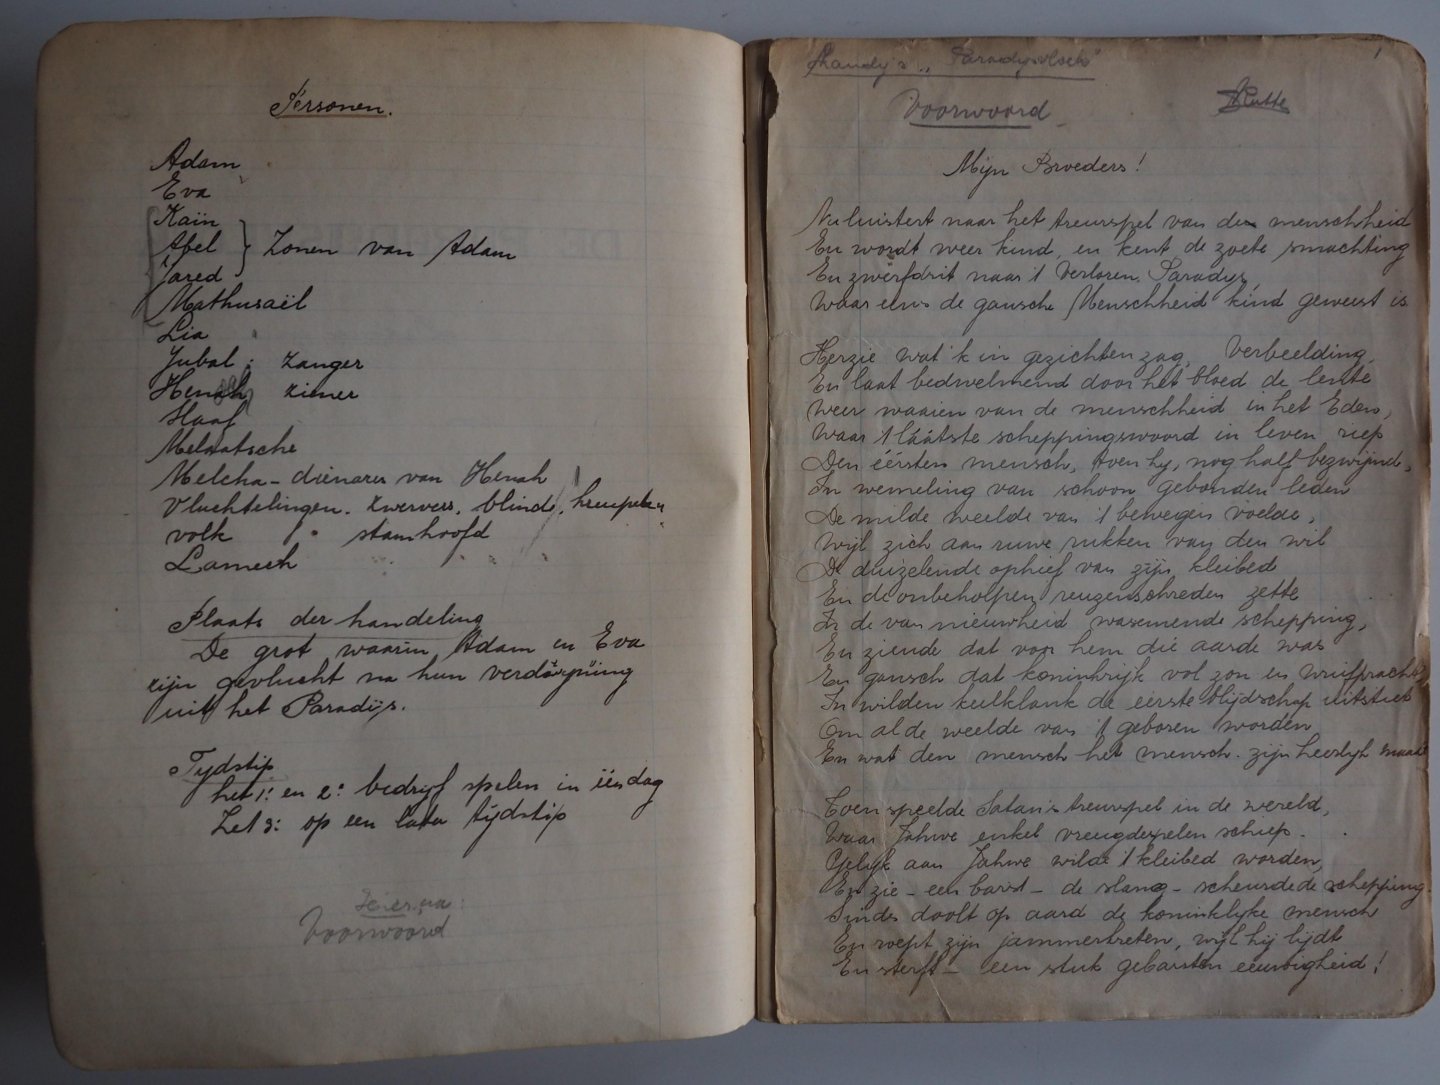 Personen.
Adam
Eva
Kaïn
Abel } Zonen van Adam
Jared
Mathusaël
Lia
Jubal : zanger
Henoch ziener
Haaf
Melaatsche
Melcha - dienares van Henoh
Vluchtelingen. zwervers, blinde, kreupelen
volk stamhoofd
Lamech
Plaats der handeling
De grot waarin Adam en Eva
zijn gevlucht na hun verdrijving
uit het Paradijs.
Tijdstip
het 1e en 2e bedrijf spelen in één dag
Het 3e op een later tijdstip
Hierna:
Voorwoord
"Paradijsvloek" 1
Voorwoord
Mijn Broeders!
Nu luistert naar het treurspel van de menschheid
En wordt weer kind, en kent de zoete smachting
En zwerfdrit naar 't Verloren Paradijs,
Waar eens de gansche Menschheid kind geweest is.
Herzie wat 'k in gezichten zag, Verbeelding,
En laat bedwelmend door het bloed de lente
Weer waaien van de menschheid in het Eden,
Waar 't láátste scheppingswoord in leven riep
Den éérsten mensch, toen hij, nog half bezwijmd,
In wemeling van schoon gebonden leden
De milde weelde van 't bewegen voelde,
Wijl zich aan ruwe rukken van den wil
De duizelende ophief van zijn kleibed
En de onbeholpen reuzenschreden zette
In de van nieuwheid wasemende schepping,
En ziende dat voor hem die aarde was
En gansch dat koninkrijk vol zon en
In wilden keelklank de eerste blijdschap uitstiet
Om al de weelde van 't geboren worden
En wat den mensch het mensch-zijn heerlijk maakt
Toen speelde Satan 's treurspel in de wereld,
Waar Jahwe enkel vreugdespelen schiep.
Gelijk aan Jahwe wilde 't kleibed worden,
En zie - een barst - de slang - scheurde de schepping.
Sinds doolt op aard de koninklijke mensch
En roept zijn jammerkreten, wijl hij lijdt
En sterft - een stuk gebarsten eeuwigheid!